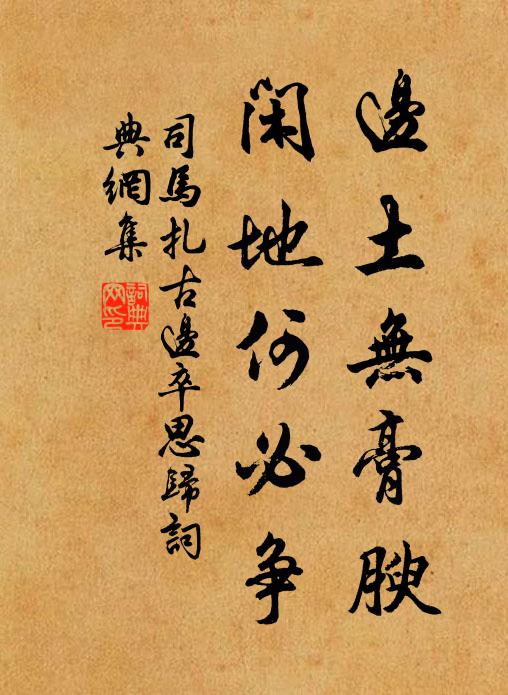 邊土無膏腴
閑地何必爭
司馬扎古邊卒思歸詞
典網集
詞典
网印